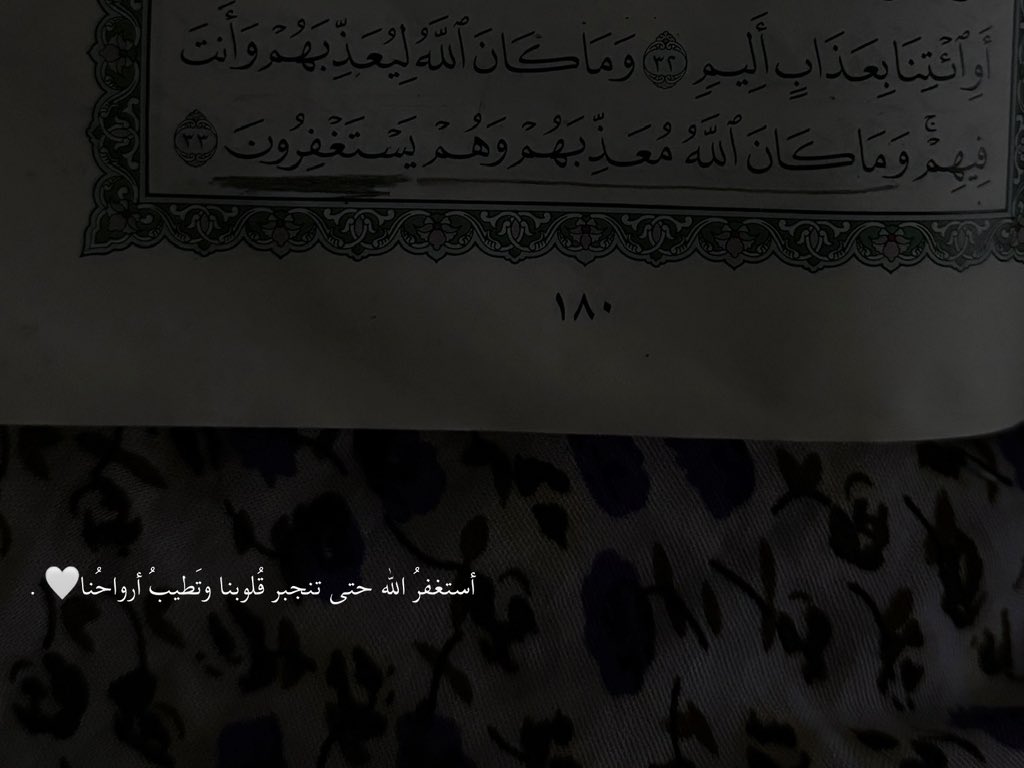 أَوِ ٱئْتِنَا بِعَذَابٍ أَلِيمٍ ٣٢ وَمَا كَانَ ٱللَّهُ لِيُعَذِّبَهُمْ وَأَنتَ
فِيهِمْۚ وَمَا كَانَ ٱللَّهُ مُعَذِّبَهُمْ وَهُمْ يَسْتَغْفِرُونَ ٣٣
١٨٠
أستغفرُ الله حتى تنجبر قُلوبنا وتَطيبُ أرواحُنا🤍 .